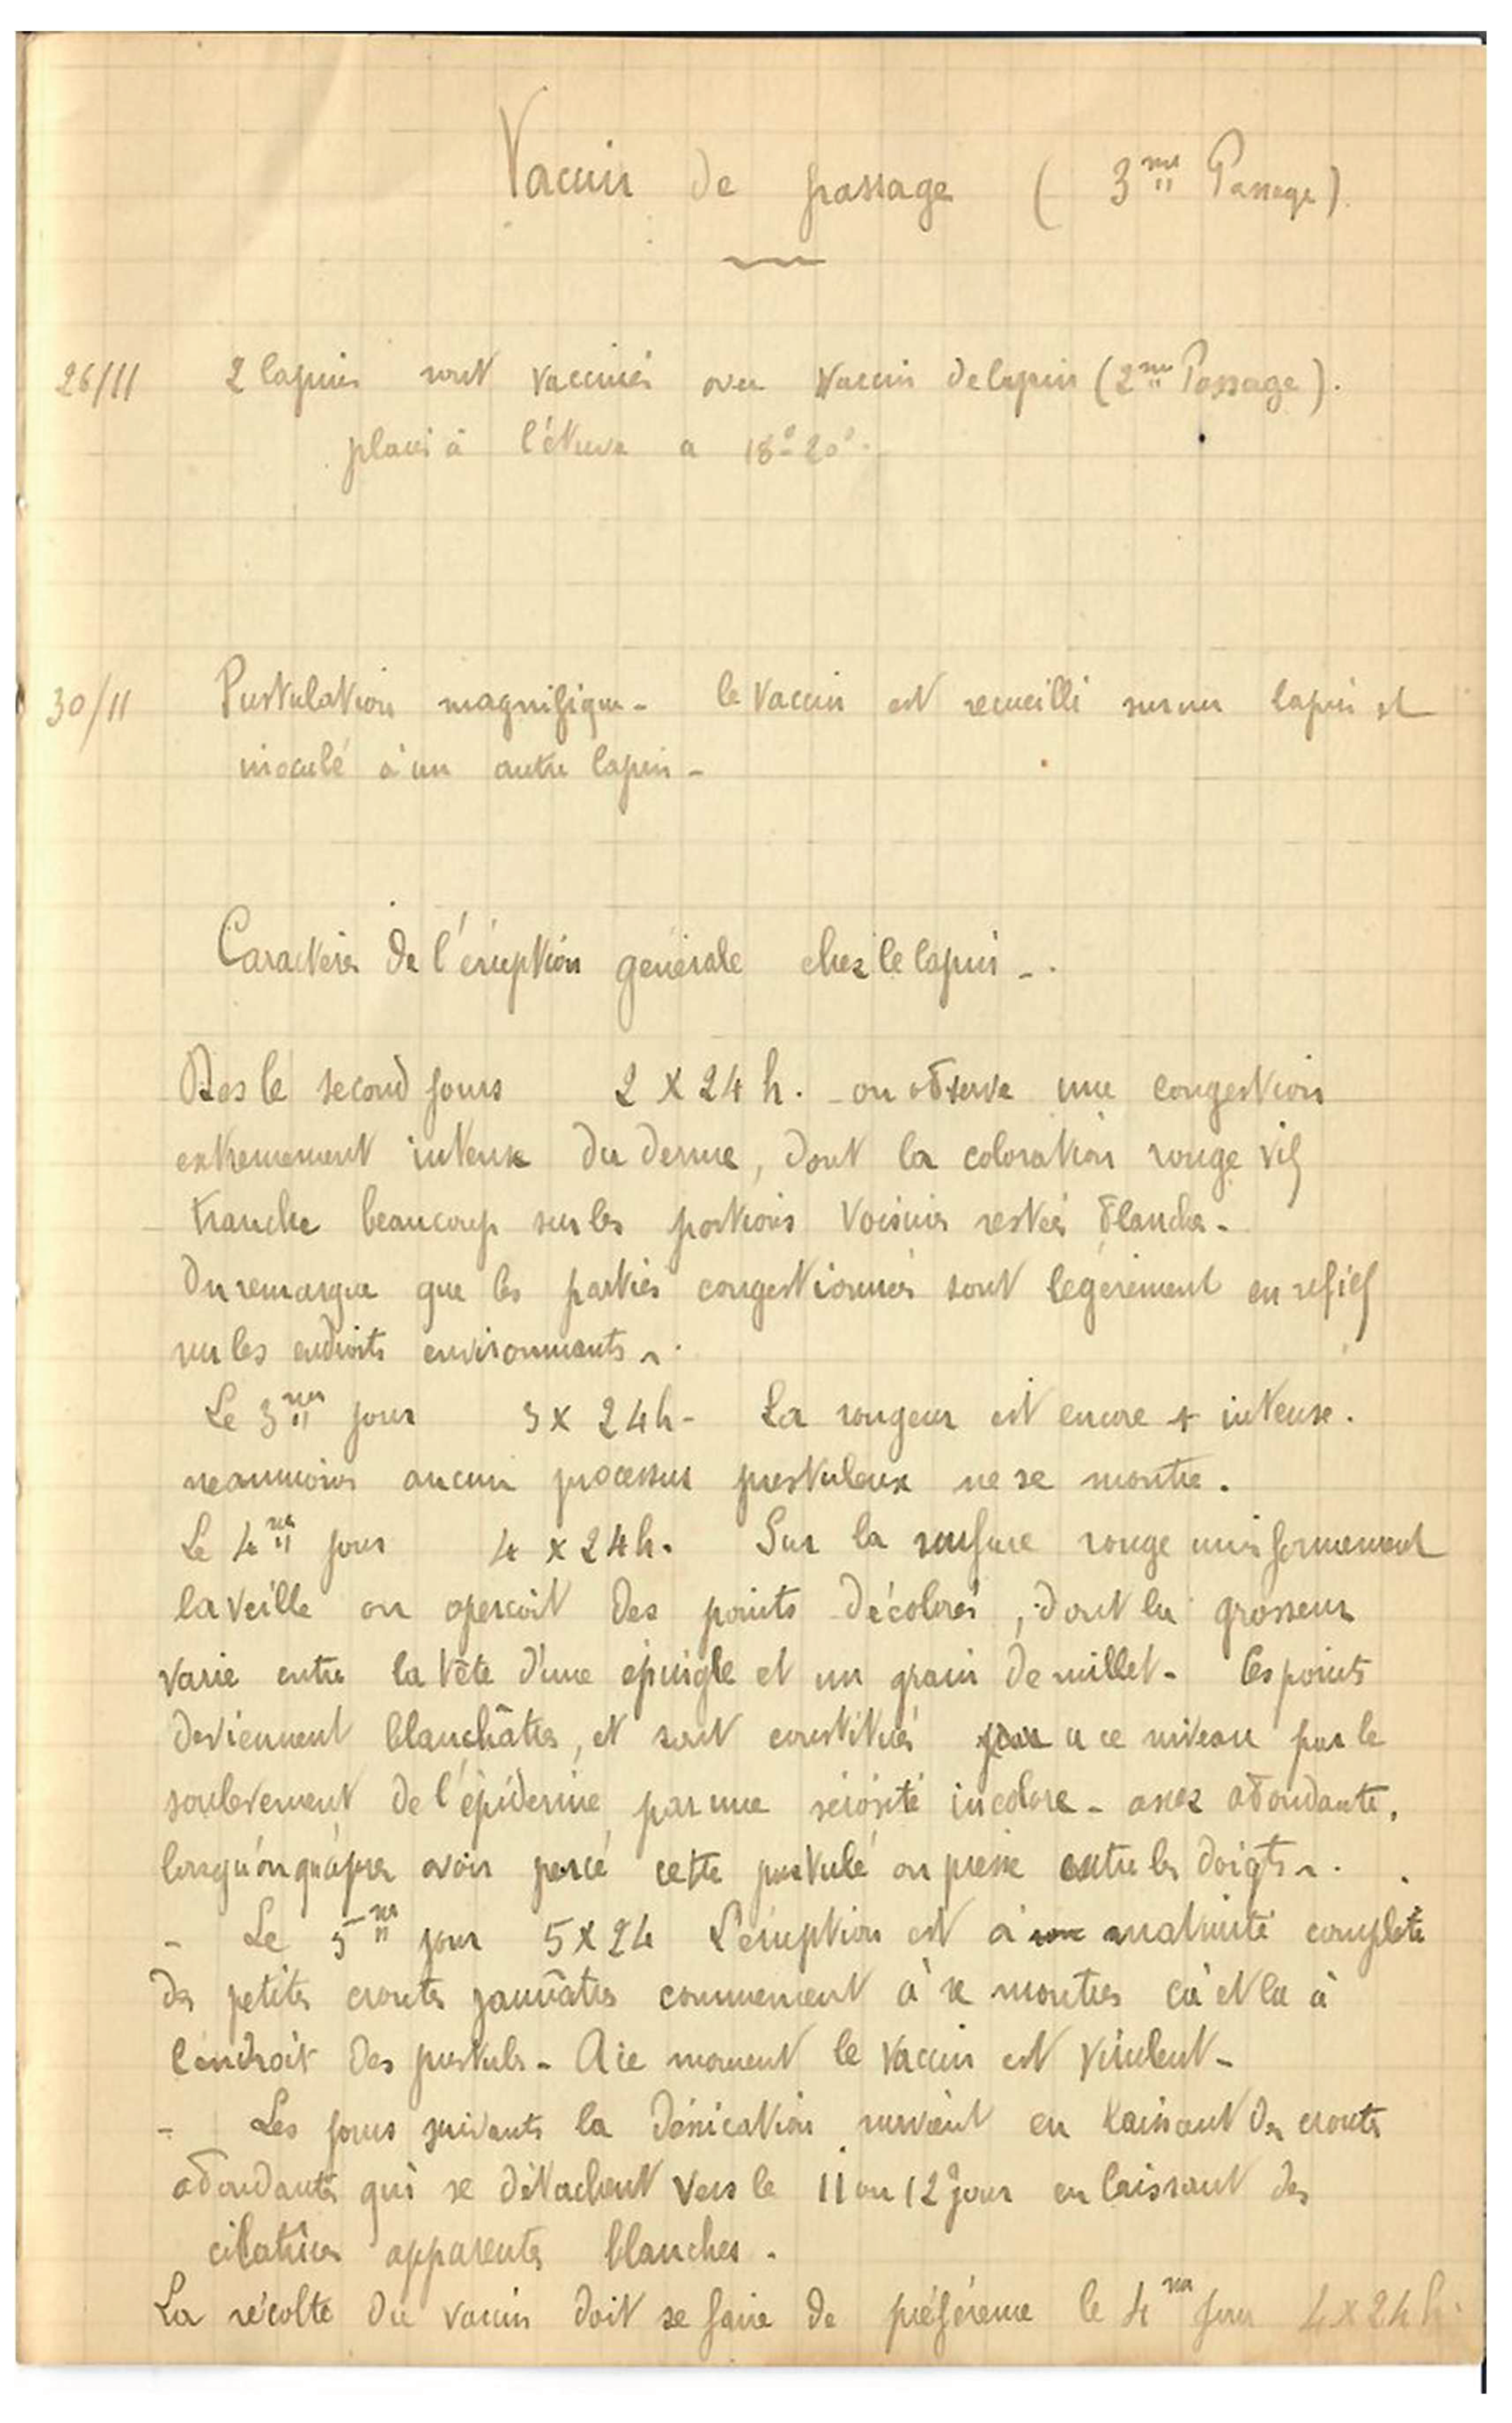 Vaccin de passage ( 3me Passage ).
26/11 2 lapins sont vaccinés avec Vaccin de lapin (2me Passage).
placés à l'étuve a 18°-20°.
30/11 Pustulation magnifique - le Vaccin est recueilli sur un lapin et
inoculé à un autre lapin -
Caractères de l'éruption générale chez le lapin -.
Des le second jours 2 x 24 h. - on observe une congestion
extremement intense du derme, dont la coloration rouge vif
tranche beaucoup sur les portions voisines restées blanches -
On remarque que les parties congestionnées sont legèrement en relief
sur les endroits environnants -.
Le 3me jour 3 x 24 h - La rougeur est encore + intense.
neanmoins aucun processus pustuleux ne se montre.
Le 4me jour 4 x 24 h. Sur la surface rouge uniformement
la veille on aperçoit des points décolorés, dont la grosseur
varie entre la tête d'une épingle et un grain de millet - Ces points
deviennent blanchâtres, et sont constitués a ce niveau par le
soulevement de l'épiderme par une sérosité incolore - assez abondante,
lorsqu'on qu'après avoir percé cette pustule on presse entre les doigts -.
- Le 5me jour 5 x 24 L'éruption est à maturité complète
des petites croutes jaunâtres commencent à se montrer çà et la à
l'endroit des pustules - A ce moment le vaccin est virulent -
- Les jours suivants la désiccation survient en laissant des croutes
abondantes qui se détachent vers le 11 ou 12e jour en laissant des
cicatrices apparentes blanches.
La récolte du vaccin doit se faire de préférence le 4me jour 4 x 24 h.